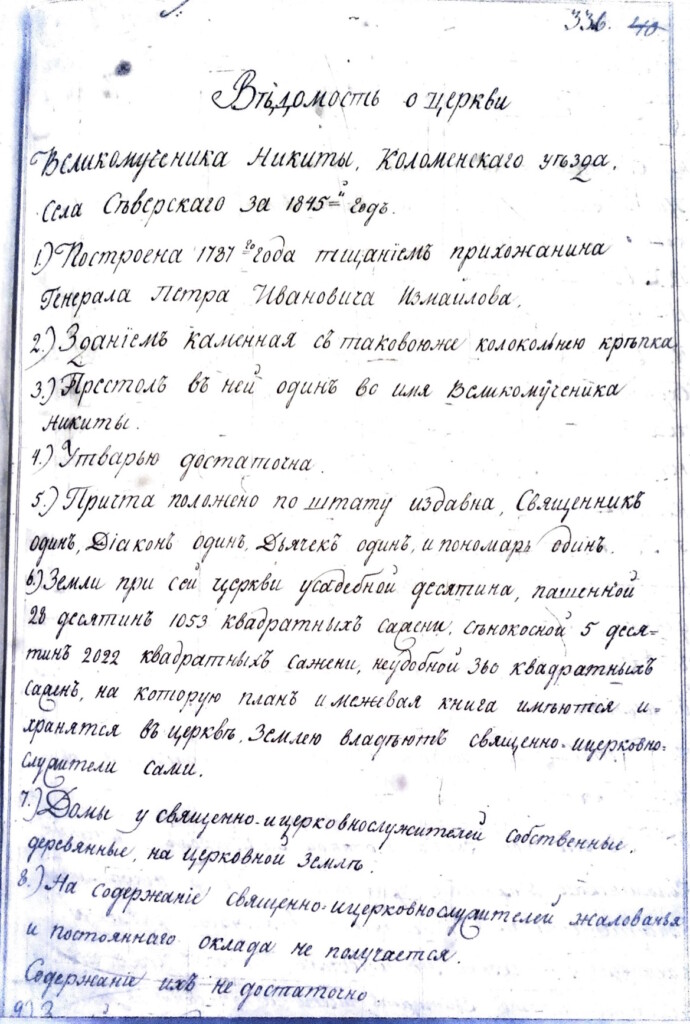 336. 40
Вѣдомость о церкви
Великомученика Никиты, Коломенскаго уѣзда,
Села Сѣверскаго за 1845й годъ.
1.) Построена 1787го года тщаніемъ прихожанина
Генерала Петра Ивановича Измайлова.
2.) Зданіемъ каменная съ таковоюже колокольнею крѣпка
3.) Престолъ въ ней одинъ во имя Великомученика
Никиты.
4.) Утварью достаточна.
5.) Причта положено по штату издавна, Священникъ
одинъ, Діаконъ одинъ, Дьячекъ одинъ, и пономарь одинъ.
6.) Земли при сей церкви усадебной десятина, пашенной
28 десятинъ 1053 квадратныхъ сажени, сѣнокосной 5 деся=
тинъ 2022 квадратныхъ сажени, неудобной 360 квадратныхъ
сажень, на которую планъ и межевая книга имѣются и=
хранятся въ церквѣ. Землею владѣютъ священно-ицерковно=
служители сами.
7.) Домы у священно-ицерковнослужителей собственные,
деревянные, на церковной землѣ.
8.) На содержаніе священно-ицерковнослужителей жалованья
и постояннаго оклада не получается.
Содержаніе ихъ не достаточно